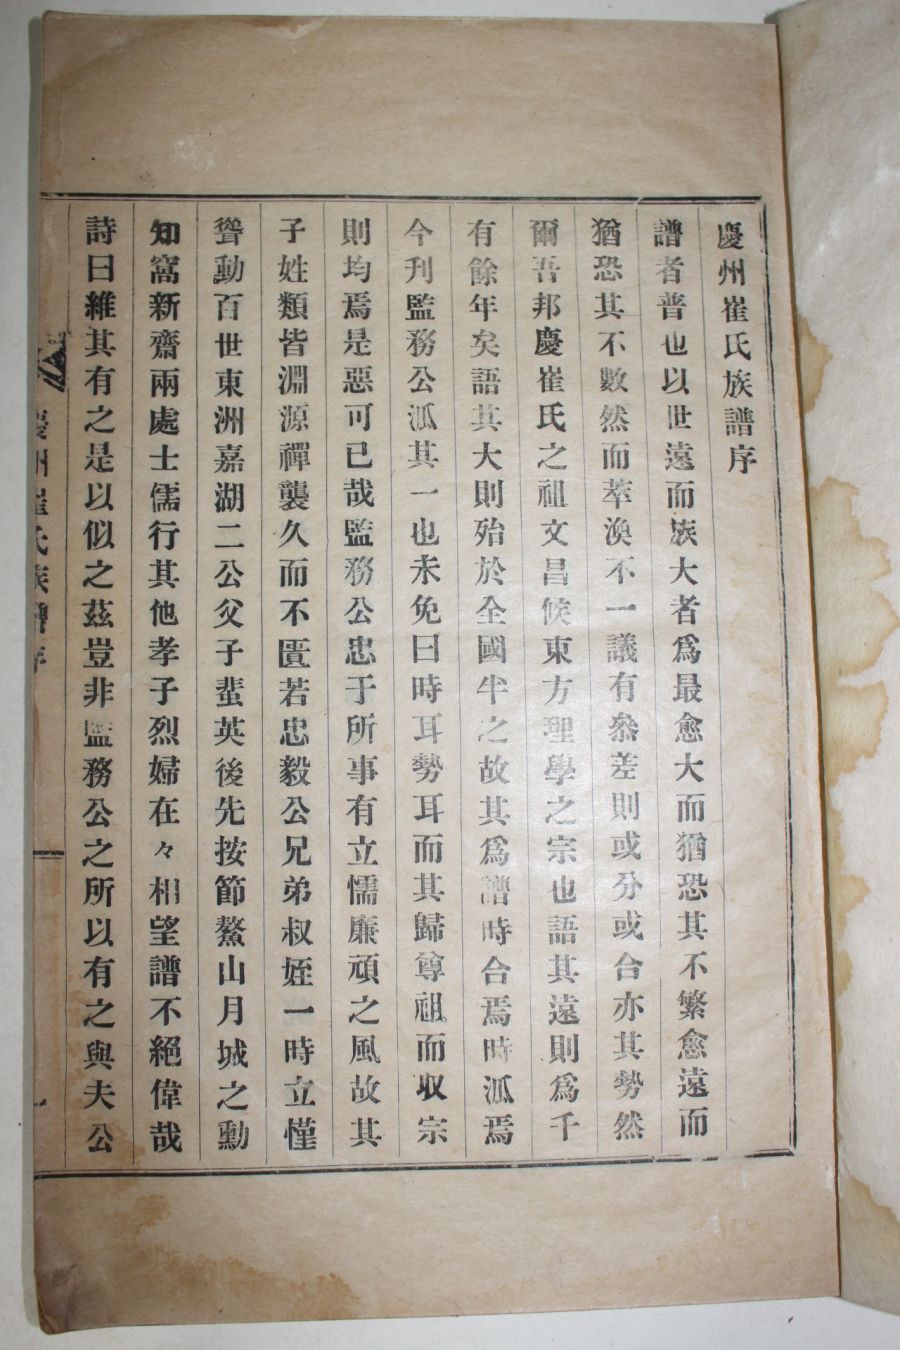 慶州崔氏族譜序
譜者普也以世遠而族大者爲最愈大而猶恐其不繁愈遠而
猶恐其不數然而萃渙不一議有叅差則或分或合亦其勢然
爾吾邦慶崔氏之祖文昌候東方理學之宗也語其遠則爲千
有餘年矣語其大則殆於全國半之故其爲譜時合焉時派焉
今刊監務公派其一也未免曰時耳勢耳而其歸尊祖而収宗
則均焉是惡可已哉監務公忠于所事有立懦廉頑之風故其
子姓類皆淵源禪襲久而不匱若忠毅公兄弟叔姪一時立慬
聳動百世東洲嘉湖二公父子蜚英後先按節鰲山月城之勳
知窩新齋兩處士儒行其他孝子烈婦在々相望譜不絕偉哉
詩曰維其有之是以似之茲豈非監務公之所以有之與夫公
慶州崔氏族譜序
一